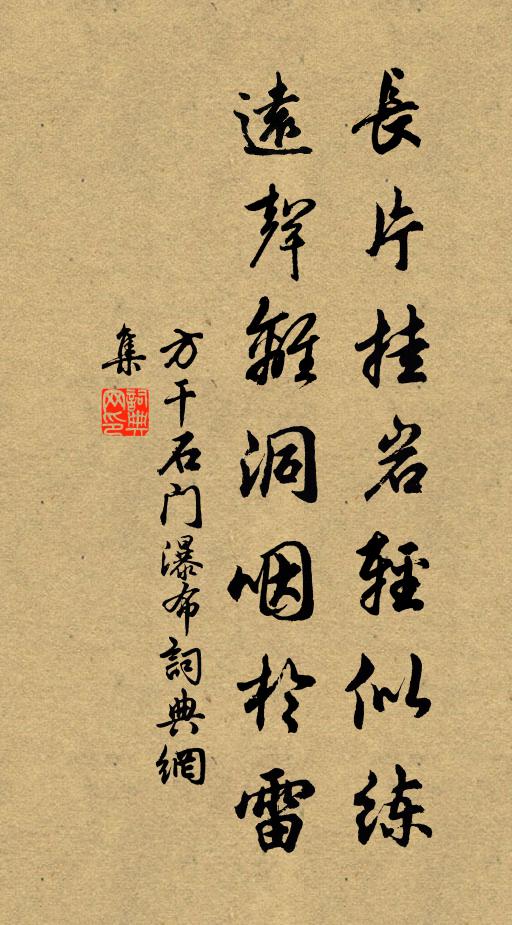 長片挂岩輕似练
遠聲離洞咽於雷
方干石门瀑布詞典網
集
詞典网印